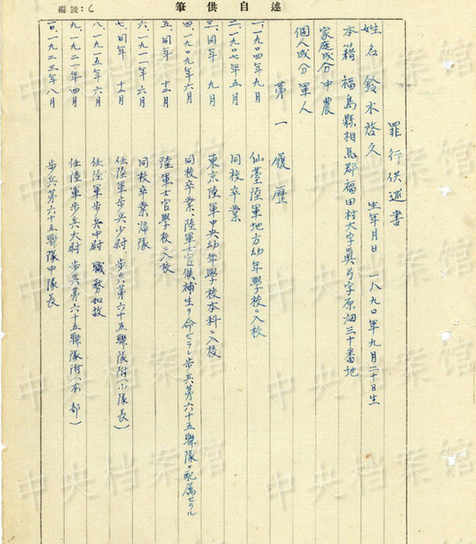 自述供筆
編號:
罪行供述書
姓名 鈴木啓久 生年月日 一八九〇年九月二十日生
本籍 福島縣相馬郡福田村大字真弓字原畑三十番地
家庭成分 中農
個人成分 軍人
第一 履歴
一、一九〇四年九月 仙臺陸軍地方幼年學校ニ入校
二、一九〇七年五月 同校卒業
三、同年 九月 東京陸軍中央幼年學校本科ニ入校
四、一九〇九年六月 同校卒業、陸軍士官候補生ヲ命ゼラレ歩兵第六十五聯隊ニ配属セラル
五、同年 十二月 陸軍士官學校ニ入校
六、一九一一年六月 同校卒業歸隊
七、同年 十二月 任陸軍歩兵少尉 歩兵第六十五聯隊附(小隊長)
八、一九一五年六月 任陸軍歩兵中尉 職務如故
九、一九二一年四月 任陸軍歩兵大尉 歩兵第六十五聯隊附(本部)
一〇、一九二三年八月 歩兵第六十五聯隊中隊長
中央档案館